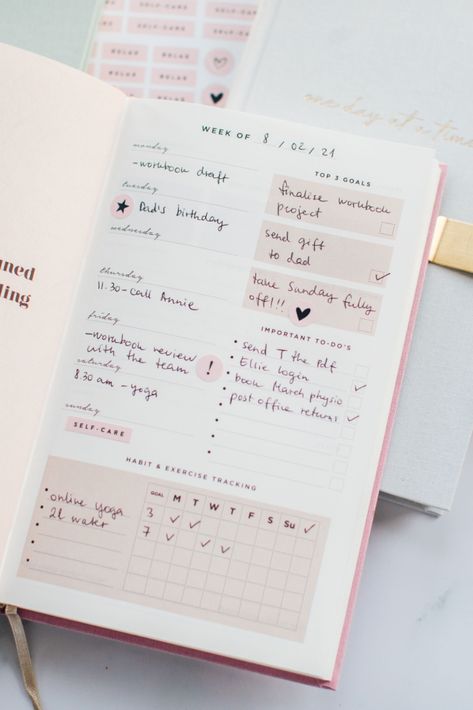 SELF-CARE
SELF-CARE
RELAX
RELAX
SELF-CARE
SELF-CARE
RELAX
RELAX
one day at a time
ned
ling
WEEK OF 8 / 02 / 21
monday
-workbook draft
tuesday
Dad's birthday
wednesday
thursday
11.30-call Annie
friday
-workbook review
with the team
!
8.30 am - yoga
sunday
SELF-CARE
TOP 3 GOALS
finalise workbook
project
send gift
to dad
take Sunday fully
off!!
IMPORTANT TO-DO'S
send T the pdf
Elsie login
book March physio
post office returns
HABIT & EXERCISE TRACKING
GOAL M T W T F S Su
online yoga 3
2L water 7